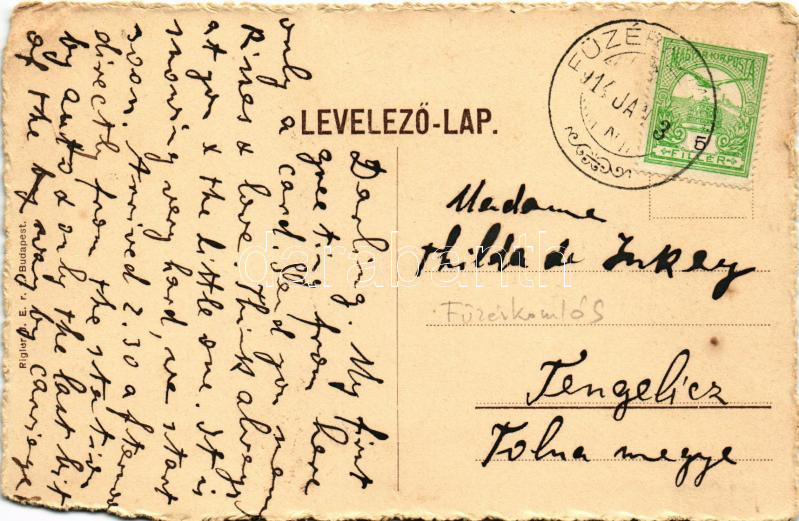 LEVELEZŐ-LAP.
FÜZÉR
914 JAN 3
MAGYAR KIR. POSTA
5
FILLÉR
Madame
Thilda de Inkey
Füzérkomlós
Tengelicz
Tolna megye
Darling. My first
greetin from here
only a card. Send you many
Kisses & love. Think always
at you & the little one. It is
snowing very hard, we start
soon. Arrived 2.30 afternoon
directly from the station
by auto & only the last bit
of the way by carriage
Rigler J. E. r. t. Budapest.
darabanth